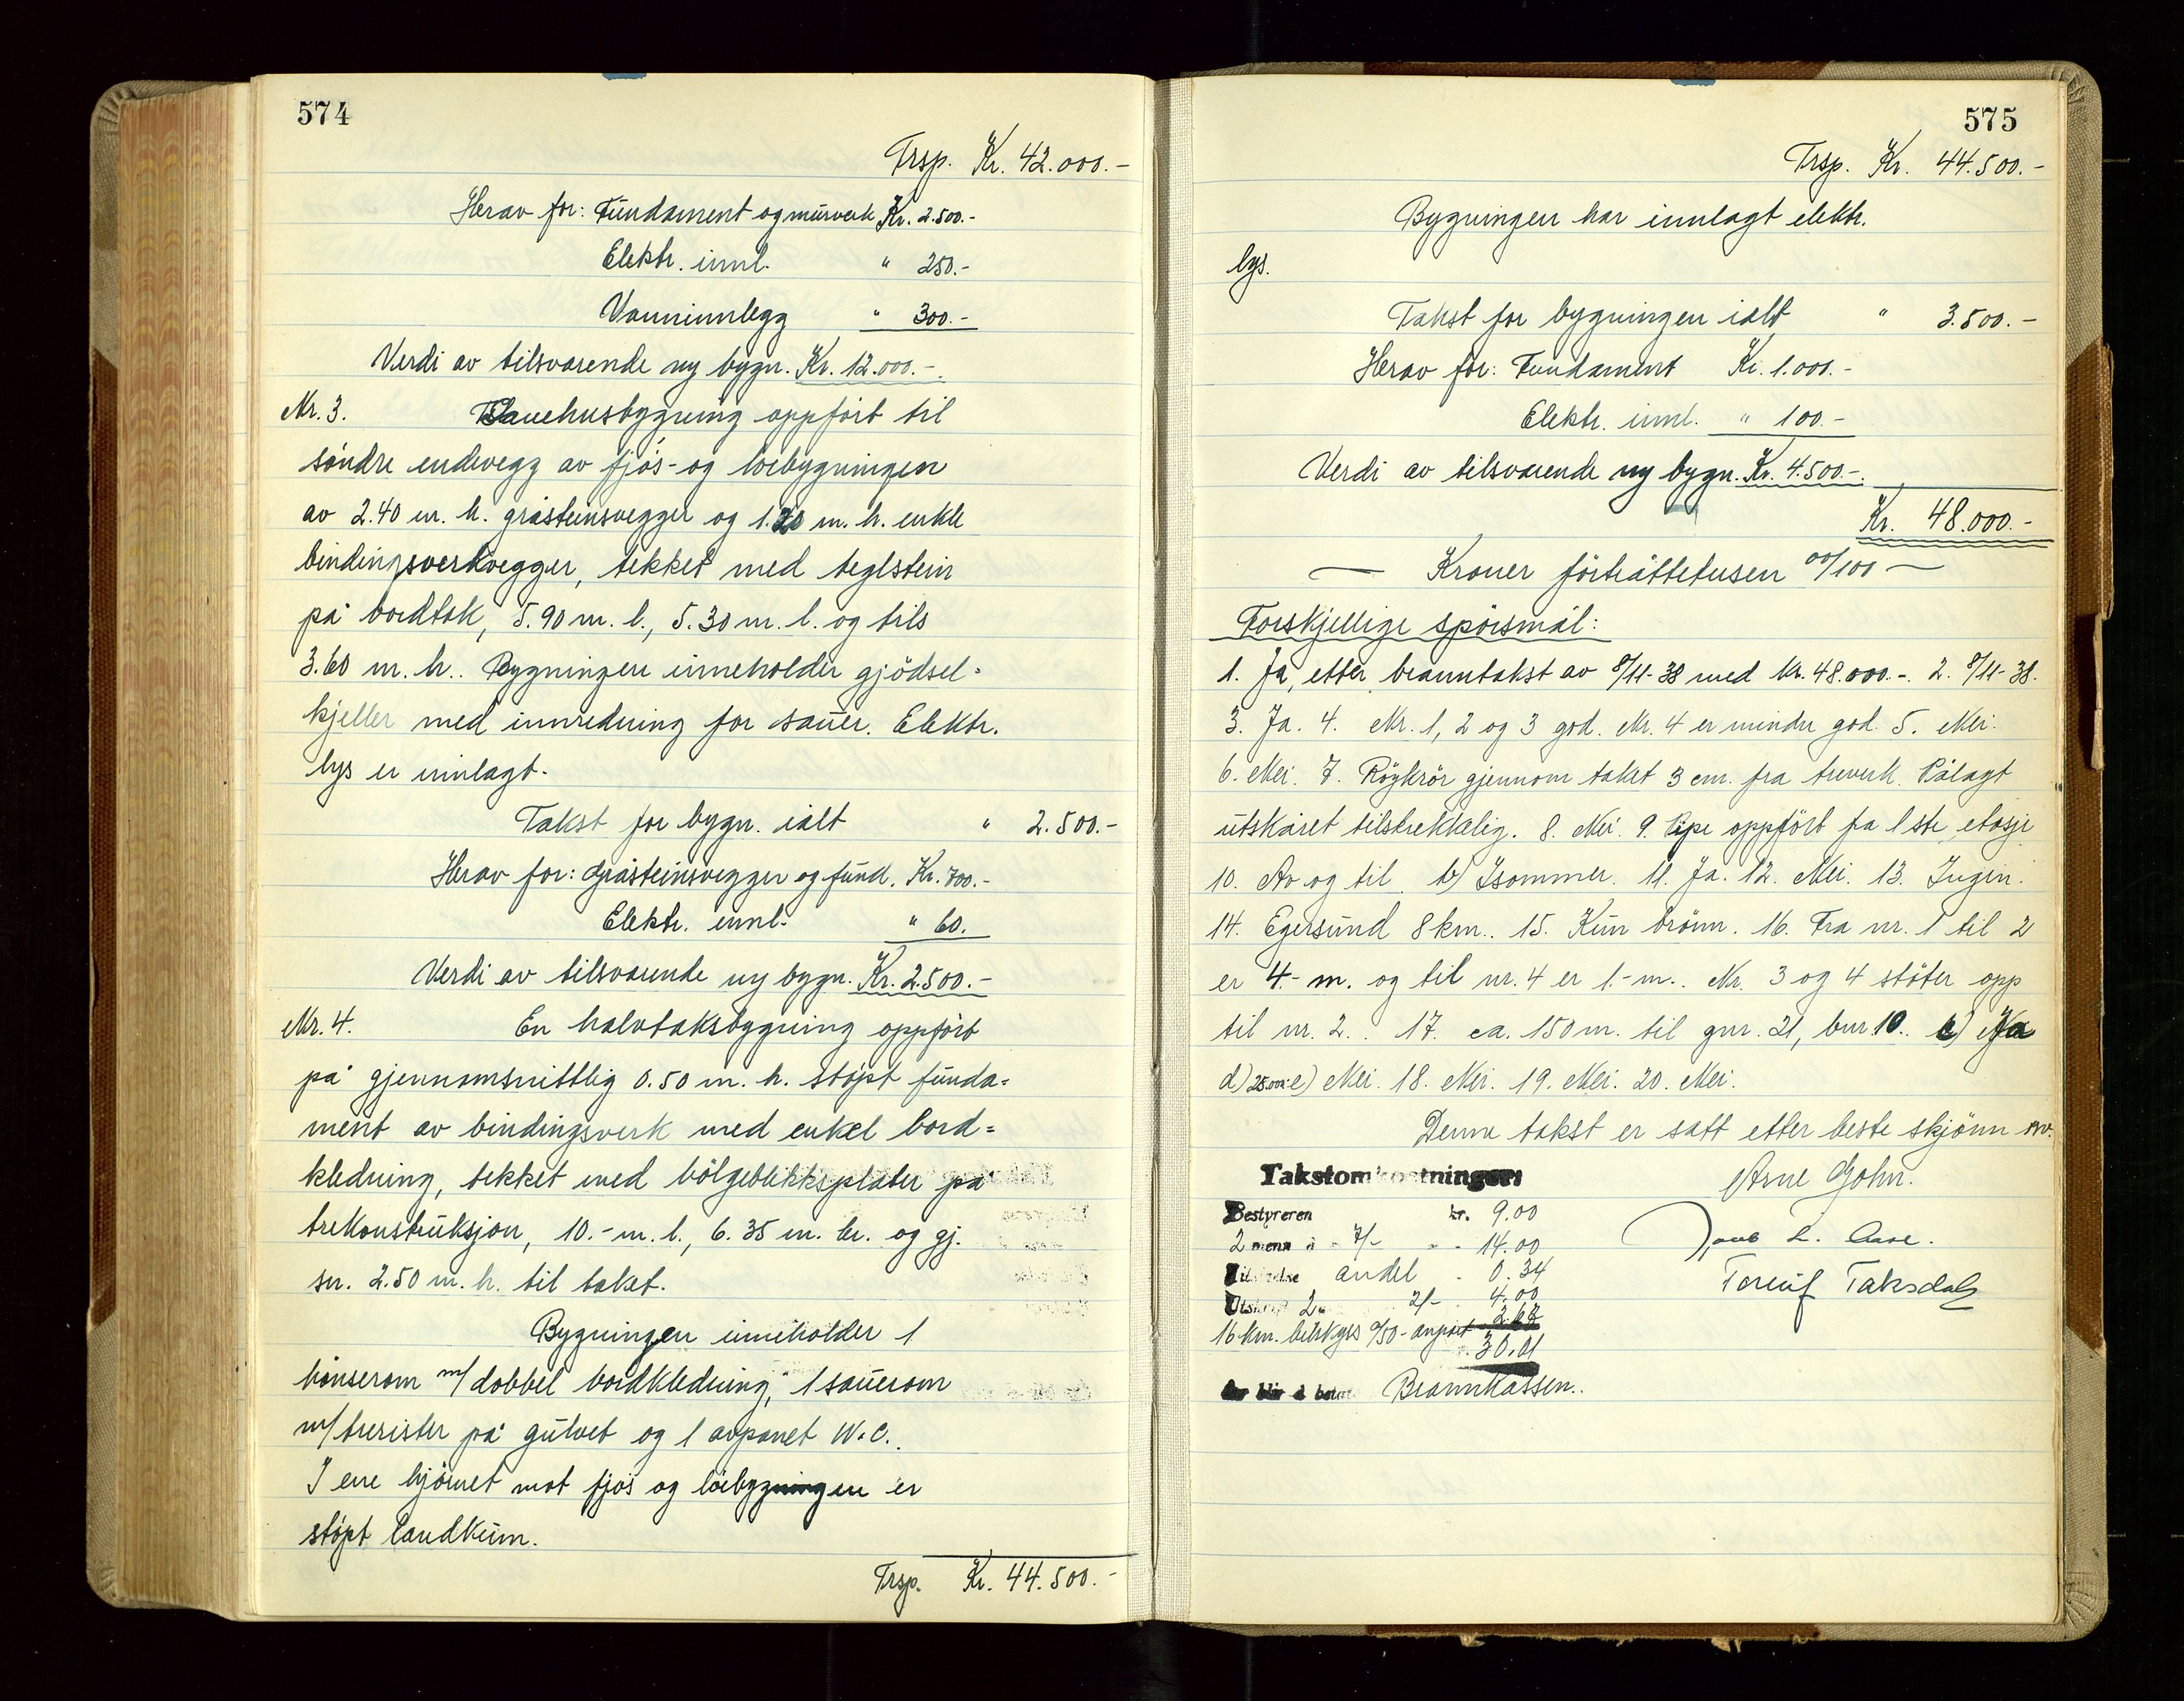 574
Trsp. Kr. 42.000.-
Herav for: Fundament og murverk Kr. 2.500.-
Elektr. innl. " 250.-
Vanninnlegg " 300.-
Verdi av tilsvarende ny bygn. Kr. 12.000.-
Nr. 3. Sauehusbygning oppført til
søndre endevegg av fjøs- og løebygningen
av 2.40 m. h. gråsteinsvegger og 1.20 m. h. enkle
bindingsverkvegger, tekket med teglstein
på bordtak, 5.90 m. l., 5.30 m. b. og tils
3.60 m. h.. Bygningen inneholder gjødsel-
kjeller med innredning for sauer. Elektr.
lys er innlagt.
Takst for bygn. ialt " 2.500.-
Herav for: Gråsteinsvegger og fund. Kr. 700.-
Elektr. innl. " 60.
Verdi av tilsvarende ny bygn. Kr. 2.500.-
Nr. 4. En halvtaksbygning oppført
på gjennomsnittlig 0.50 m. h. støpt funda-
ment av bindingsverk med enkel bord-
kledning, tekket med bølgeblikksplater på
trekonstruksjon, 10.- m. l., 6.35 m. br. og gj.
sn. 2.50 m. h. til taket.
Bygningen inneholder 1
hønserom m/ dobbel bordkledning, 1 sauerom
m/ trerister på gulvet og 1 avpanet W.C..
I ene hjørnet mot fjøs og løebygningen er
støpt landkum.
Trsp. Kr. 44.500.-
575
Trsp. Kr. 44.500.-
Bygningen har innlagt elektr.
lys.
Takst for bygningen ialt " 3.500.-
Herav for: Fundament Kr. 1.000.-
Elektr. innl. " 100.-
Verdi av tilsvarende ny bygn. Kr. 4.500.-
Kr. 48.000.-
Kroner førtiåttetusen 00/100
Forskjellige spørsmål:
1. Ja, etter branntakst av 8/11-38 med kr. 48.000.-. 2. 8/11-38.
3. Ja. 4. Nr. 1, 2 og 3 god. Nr. 4 er mindre god. 5. Nei.
6. Nei. 7. Røykrør gjennom taket 3 cm. fra treverk. Pålagt
utskåret tilstrekkelig. 8. Nei. 9. Pipe oppført fra 1ste etasje
10. Av og til. b) Isommer. 11. Ja. 12. Nei. 13. Ingen.
14. Egersund 8 km.. 15. Kun brønn. 16. Fra nr. 1 til 2
er 4.- m. og til nr. 4 er 1.- m.. Nr. 3 og 4 støter opp
til nr. 2.. 17. ca. 150 m. til gnr. 21, bnr. 10. c) Ja
d) 25.000.- e) Nei. 18. Nei. 19. Nei. 20. Nei.
Denne takst er satt etter beste skjønn av.
Takstomkostninger:
Arne Gohn.
Bestyreren kr. 9.00
2 menn à 7/- 14.00
andel 0.34
Utskrift 2 2/- 4.00
Toreiif Taksdal
16 km. 0/50 2.67
30.01
Brannkassen..